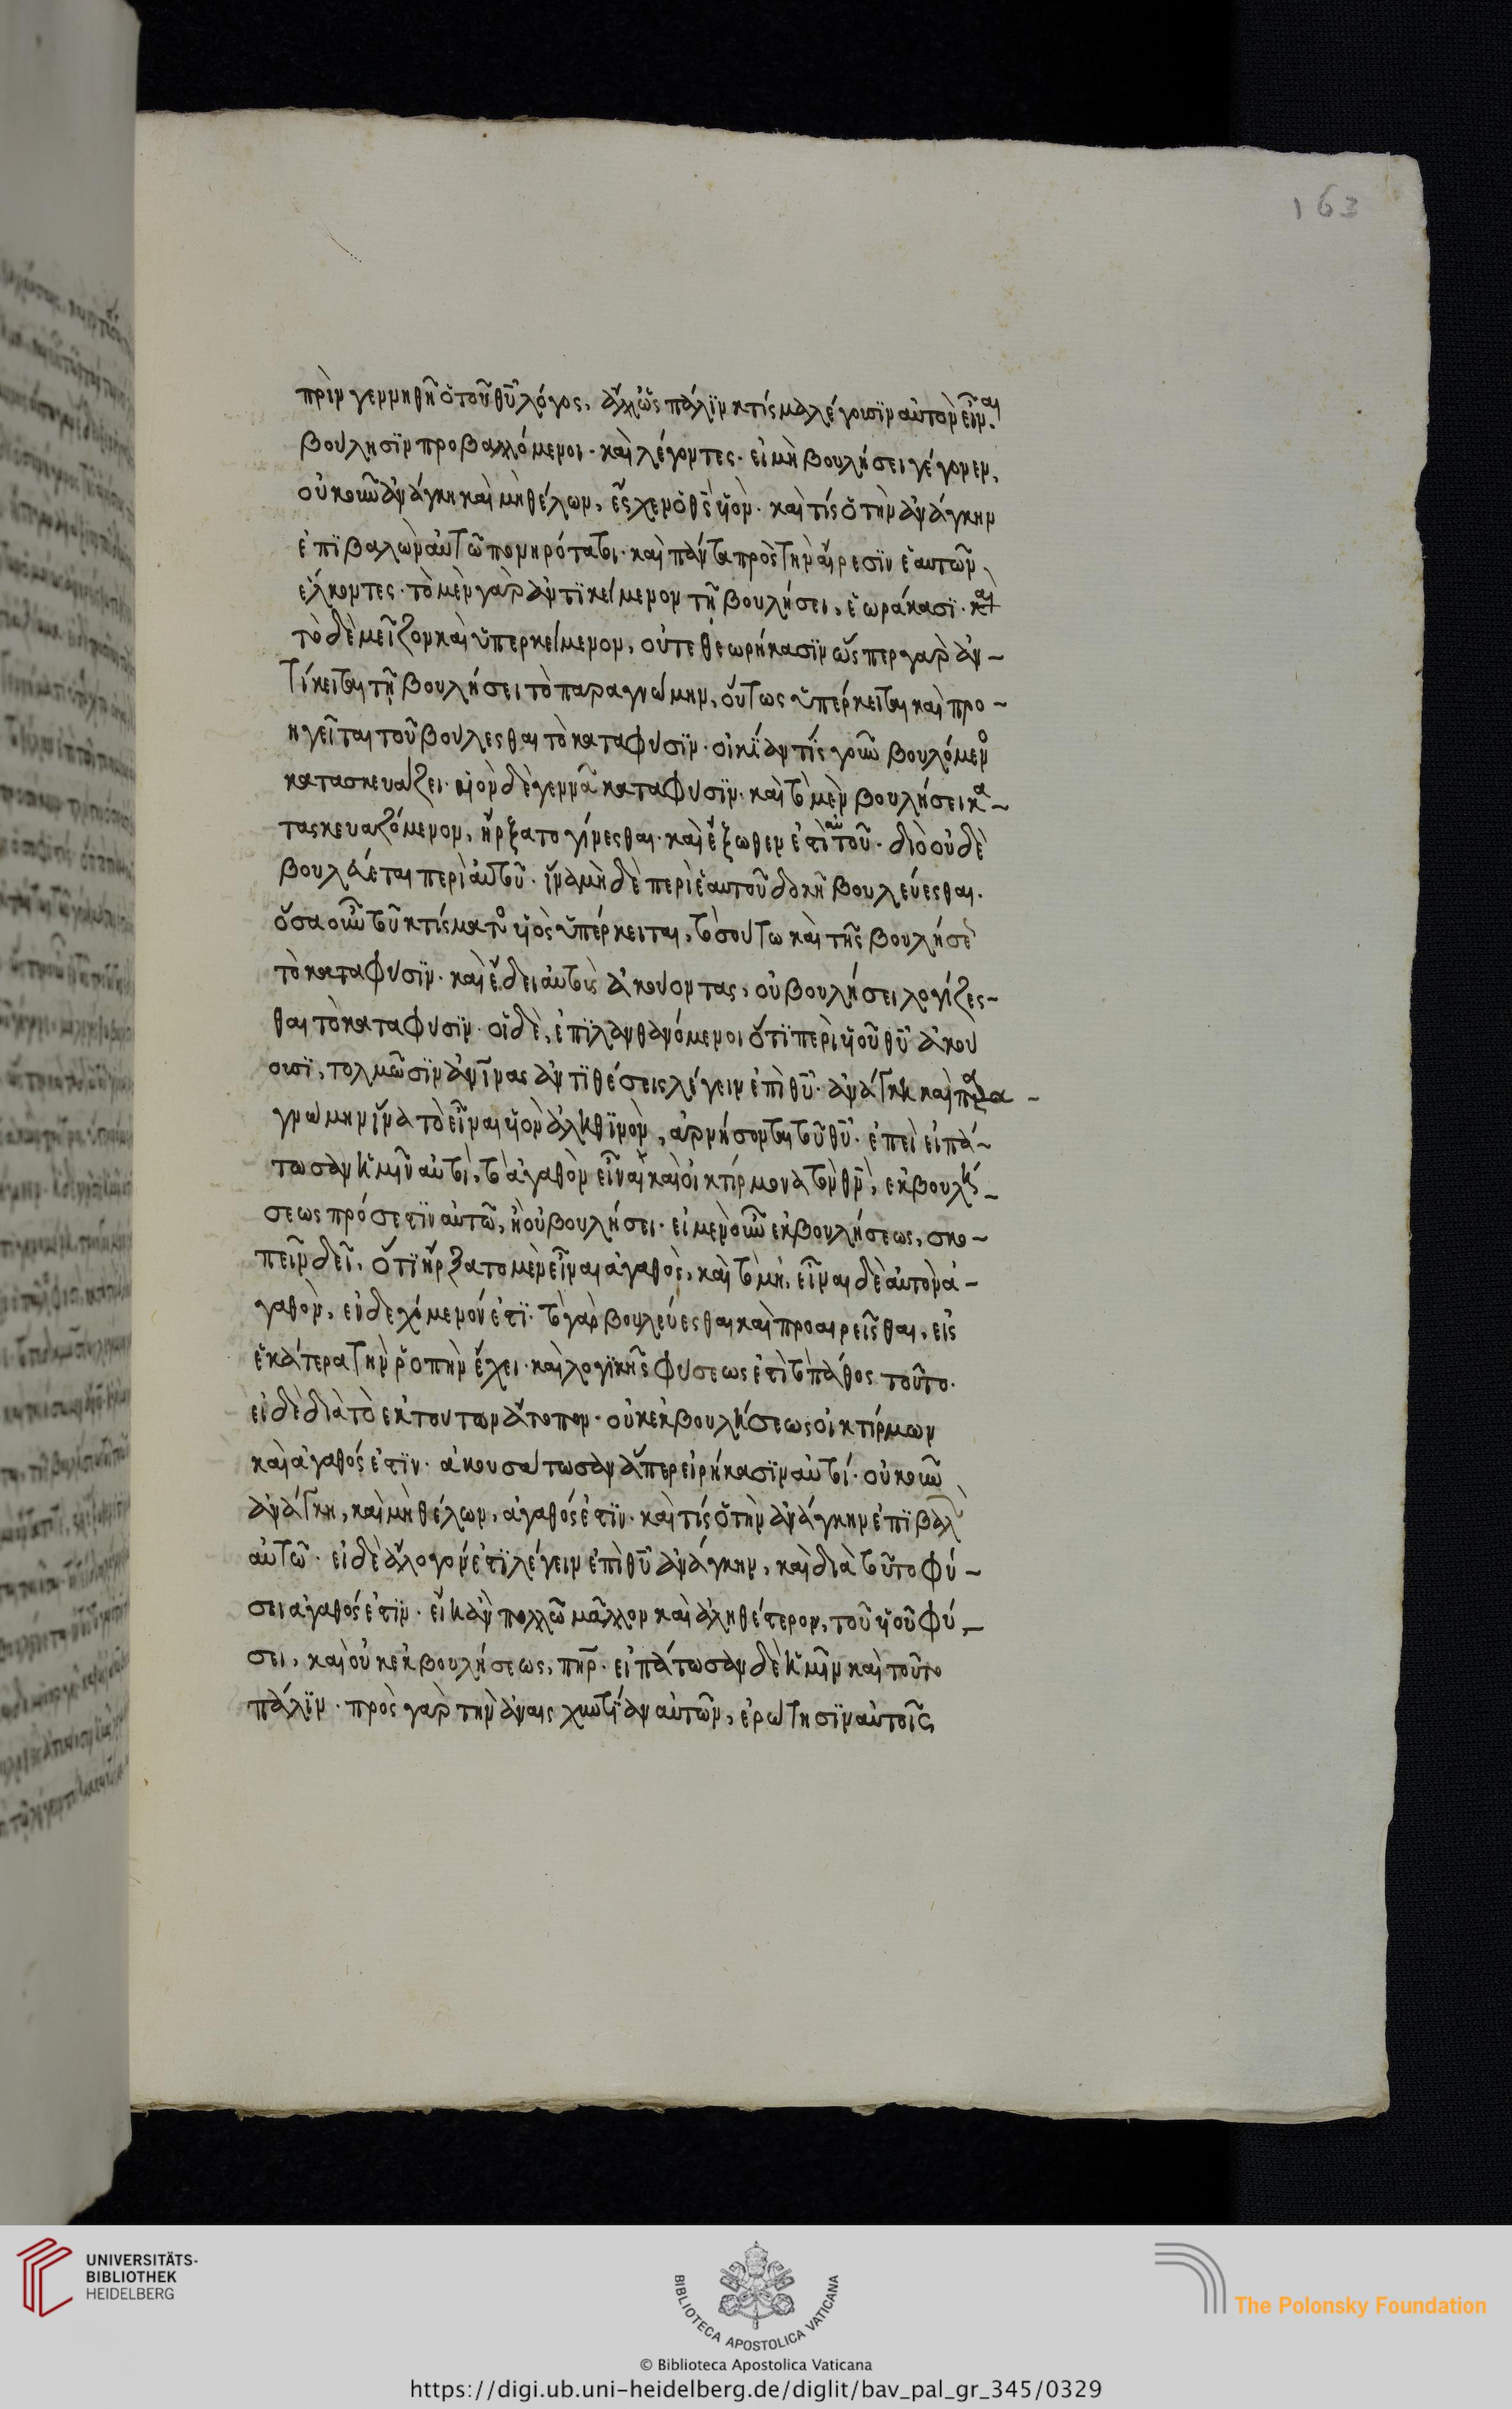 163
πρὶν γεννηθῆ ὁ τοῦ θῦ λόγος, ἄλλως πάλϊν κτίσμα λέγουσϊν αὐτὸν εἶναι.
βούλησϊν προβαλλόμενοι· καὶ λέγοντες· εἰ μὴ βουλήσει γέγονεν,
οὐκοῦν ἀνάγκη καὶ μὴ θέλων, ἔσχεν ὁ θς ὑὸν· καὶ τίς ὁ τὴν ἀνάγκην
ἐπϊβαλὼν αὐτῶ πονηρότατοι· καὶ πάντα πρὸς τὴν αἵρεσϊν ἑαυτῶν
ἕλκοντες· τὸ μὲν γὰρ ἀντϊκείμενον τῇ βουλήσει, ἑωράκασϊ· καὶ
τὸ δὲ μεῖζον καὶ ὑπερκείμενον, οὐ τεθεωρήκασϊν ὥσπερ γὰρ ἀν-
τίκειται τῇ βουλήσει τὸ παρα γνώμην, οὕτως ὑπέρκειται καὶ προ-
ηγεῖται τοῦ βούλεσθαι τὸ κατα φύσϊν· οἰκΐαν τὶς γοῦν βουλόμενο
κατασκευάζει· υἱὸν δὲ γεννᾶ κατα φύσϊν· καὶ τὸ μὲν βουλήσει κα-
τασκευαζόμενον, ἤρξατο γίνεσθαι· καὶ ἔξωθεν ἐστὶ αὐτοῦ· διὸ οὐδὲ
βουλεύεται περὶ αὐτοῦ· ἵνα μὴ δὲ περὶ ἑαυτοῦ δοκῆ βουλεύεσθαι.
ὅσα οὖν τοῦ κτίσματο ὑὸς ὑπέρκειται, τοσούτω καὶ τῆς βουλήσε
τὸ κατα φύσϊν· καὶ ἔδει αὐτοὺς ἀκούοντας, οὐ βουλήσει λογίζεσ-
θαι τὸ κατα φύσϊν· οἱ δὲ, ἐπϊλανθανόμενοι ὅτϊ περὶ ὑοῦ θῦ ἀκού
ουσϊ, τολμῶσϊν ἀνῖνας ἀντϊθέσεις λέγειν ἐπὶ θῦ· ἀνάγκη καὶ παρα-
γνώμην ἵνα τὸ εἶναι ὑὸν ἀληθϊνὸν, ἀρνήσονται τοῦ θῦ· ἐπεὶ εἰπά-
τωσαν ἡμῖν αὐτοὶ, τὸ ἀγαθὸν εἶναι καὶ οἰκτίρμονα τὸν θν, ἐκ βουλή-
σεως πρόσεστϊν αὐτῶ, ἢ οὐ βουλήσει· εἰ μὲν οὖν ἐκ βουλήσεως, σκο-
πεῖν δεῖ, ὅτϊ ἤρξατο μὲν εἶναι ἀγαθὸς, καὶ τὸ μὴ, εἶναι δὲ αὐτὸν ἀ-
γαθὸν, ἐνδεχόμενόν ἐστϊ· τὸ γὰρ βουλεύεσθαι καὶ προαιρεῖσθαι, εἰς
ἑκάτερα τὴν ῥοπὴν ἔχει· καὶ λογϊκῆς φύσεως ἐστὶ τὸ πάθος τοῦτο·
εἰ δὲ διὰ τὸ ἐκ τούτων ἄτοπον· οὐκ ἐκ βουλήσεως οἰκτίρμων
καὶ ἀγαθός ἐστϊν· ἀκουσάτωσαν ἅπερ εἰρήκασϊν αὐτοί· οὐκοῦν
ἀνάγκη, καὶ μὴ θέλων, ἀγαθός ἐστϊν· καὶ τίς ὁ τὴν ἀνάγκην ἐπϊβαλ
αὐτῶ· εἰ δὲ ἄλογόν ἐστϊ λέγειν ἐπὶ θῦ ἀνάγκην, καὶ διὰ τοῦτο φύ-
σει ἀγαθός ἐστϊν· εἴη ἂν πολλῶ μᾶλλον καὶ ἀληθέστερον, τοῦ ὑοῦ φύ-
σει, καὶ οὐκ ἐκ βουλήσεως, πηρ· εἰπάτωσαν δὲ ἡμῖν καὶ τοῦτο
πάλϊν· πρὸς γὰρ τὴν ἀναισχυντΐαν αὐτῶν, ἐρώτησϊν αὐτοῖς
UNIVERSITÄTS-
BIBLIOTHEK
HEIDELBERG
BIBLIOTECA APOSTOLICA VATICANA
The Polonsky Foundation
© Biblioteca Apostolica Vaticana
https://digi.ub.uni-heidelberg.de/diglit/bav_pal_gr_345/0329